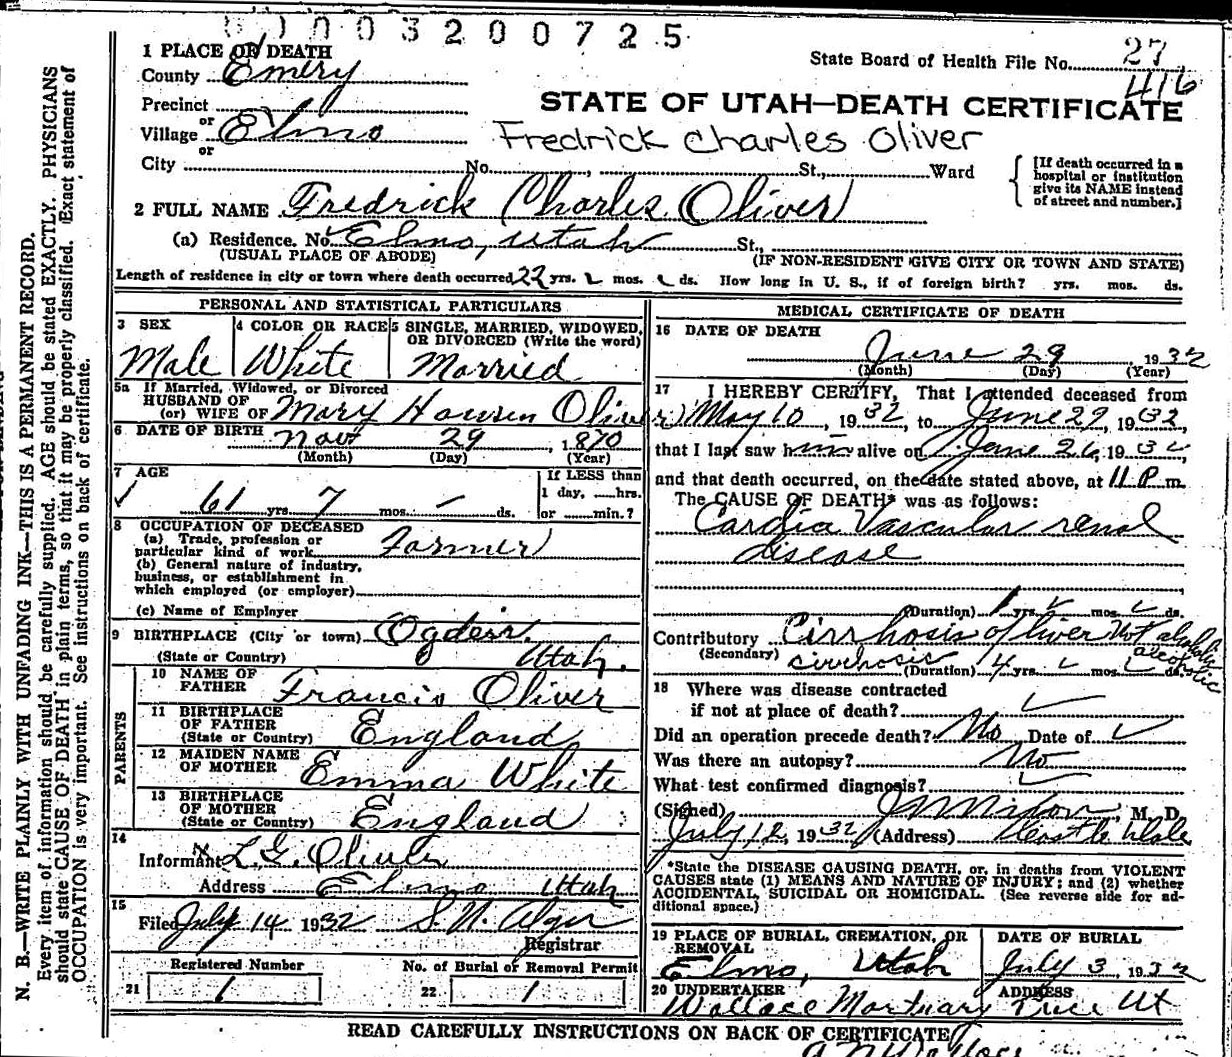 003200725
1 PLACE OF DEATH
County Emery
State Board of Health File No. 27
416
Precinct
or
Village Elmo
or
STATE OF UTAH—DEATH CERTIFICATE
Fredrick Charles Oliver
City No. , St., Ward
[If death occurred in a
hospital or institution
give its NAME instead
of street and number.]
2 FULL NAME Fredrick Charles Oliver
(a) Residence. No. Elmo, Utah St.,
(USUAL PLACE OF ABODE) (IF NON-RESIDENT GIVE CITY OR TOWN AND STATE)
Length of residence in city or town where death occurred 22 yrs. mos. ds. How long in U. S., if of foreign birth? yrs. mos. ds.
PERSONAL AND STATISTICAL PARTICULARS
3 SEX
Male
4 COLOR OR RACE
White
5 SINGLE, MARRIED, WIDOWED,
OR DIVORCED (Write the word)
Married
5a If Married, Widowed, or Divorced
HUSBAND OF
(or) WIFE OF Mary Hansen Oliver
6 DATE OF BIRTH Nov 29 1870
(Month) (Day) (Year)
7 AGE
61 yrs. 7 mos. – ds.
If LESS than
1 day, hrs.
or min.?
8 OCCUPATION OF DECEASED
(a) Trade, profession or
particular kind of work Farmer
(b) General nature of industry,
business, or establishment in
which employed (or employer)
(c) Name of Employer
9 BIRTHPLACE (City or town) Ogden.
(State or Country) Utah.
PARENTS
10 NAME OF
FATHER Francis Oliver
11 BIRTHPLACE
OF FATHER
(State or Country) England
12 MAIDEN NAME
OF MOTHER Emma White
13 BIRTHPLACE
OF MOTHER
(State or Country) England
14
Informant L. G. Oliver
Address Elmo Utah
15
Filed July 14 1932 S. N. Alger
Registrar
Registered Number
21 1
No. of Burial or Removal Permit
22 1
MEDICAL CERTIFICATE OF DEATH
16 DATE OF DEATH
June 29, 1932
(Month) (Day) (Year)
17 I HEREBY CERTIFY, That I attended deceased from
May 10, 1932, to June 29, 1932,
that I last saw him alive on June 26, 1932,
and that death occurred, on the date stated above, at 11 P. m.
The CAUSE OF DEATH* was as follows:
Cardia Vascular renal
disease
(Duration) 1 yrs. mos. ds.
Contributory Cirrhosis of liver Not alcoholic
(Secondary) cirrhosis alcoholic
(Duration) 4 yrs. mos. ds.
18 Where was disease contracted
if not at place of death?
Did an operation precede death? No Date of
Was there an autopsy? No
What test confirmed diagnosis?
(Signed) M. D.
July 12, 1932 (Address) Castle Dale
*State the DISEASE CAUSING DEATH, or, in deaths from VIOLENT
CAUSES state (1) MEANS AND NATURE OF INJURY; and (2) whether
ACCIDENTAL, SUICIDAL OR HOMICIDAL. (See reverse side for ad-
ditional space.)
19 PLACE OF BURIAL, CREMATION, OR
REMOVAL
Elmo, Utah
DATE OF BURIAL
July 3, 1932
20 UNDERTAKER ADDRESS
Wallace Mortuary Price Ut
READ CAREFULLY INSTRUCTIONS ON BACK OF CERTIFICATE
N. B.—WRITE PLAINLY WITH UNFADING INK—THIS IS A PERMANENT RECORD.
Every item of information should be carefully supplied. AGE should be stated EXACTLY. PHYSICIANS
should state CAUSE OF DEATH in plain terms, so that it may be properly classified. Exact statement of
OCCUPATION is very important. See instructions on back of certificate.